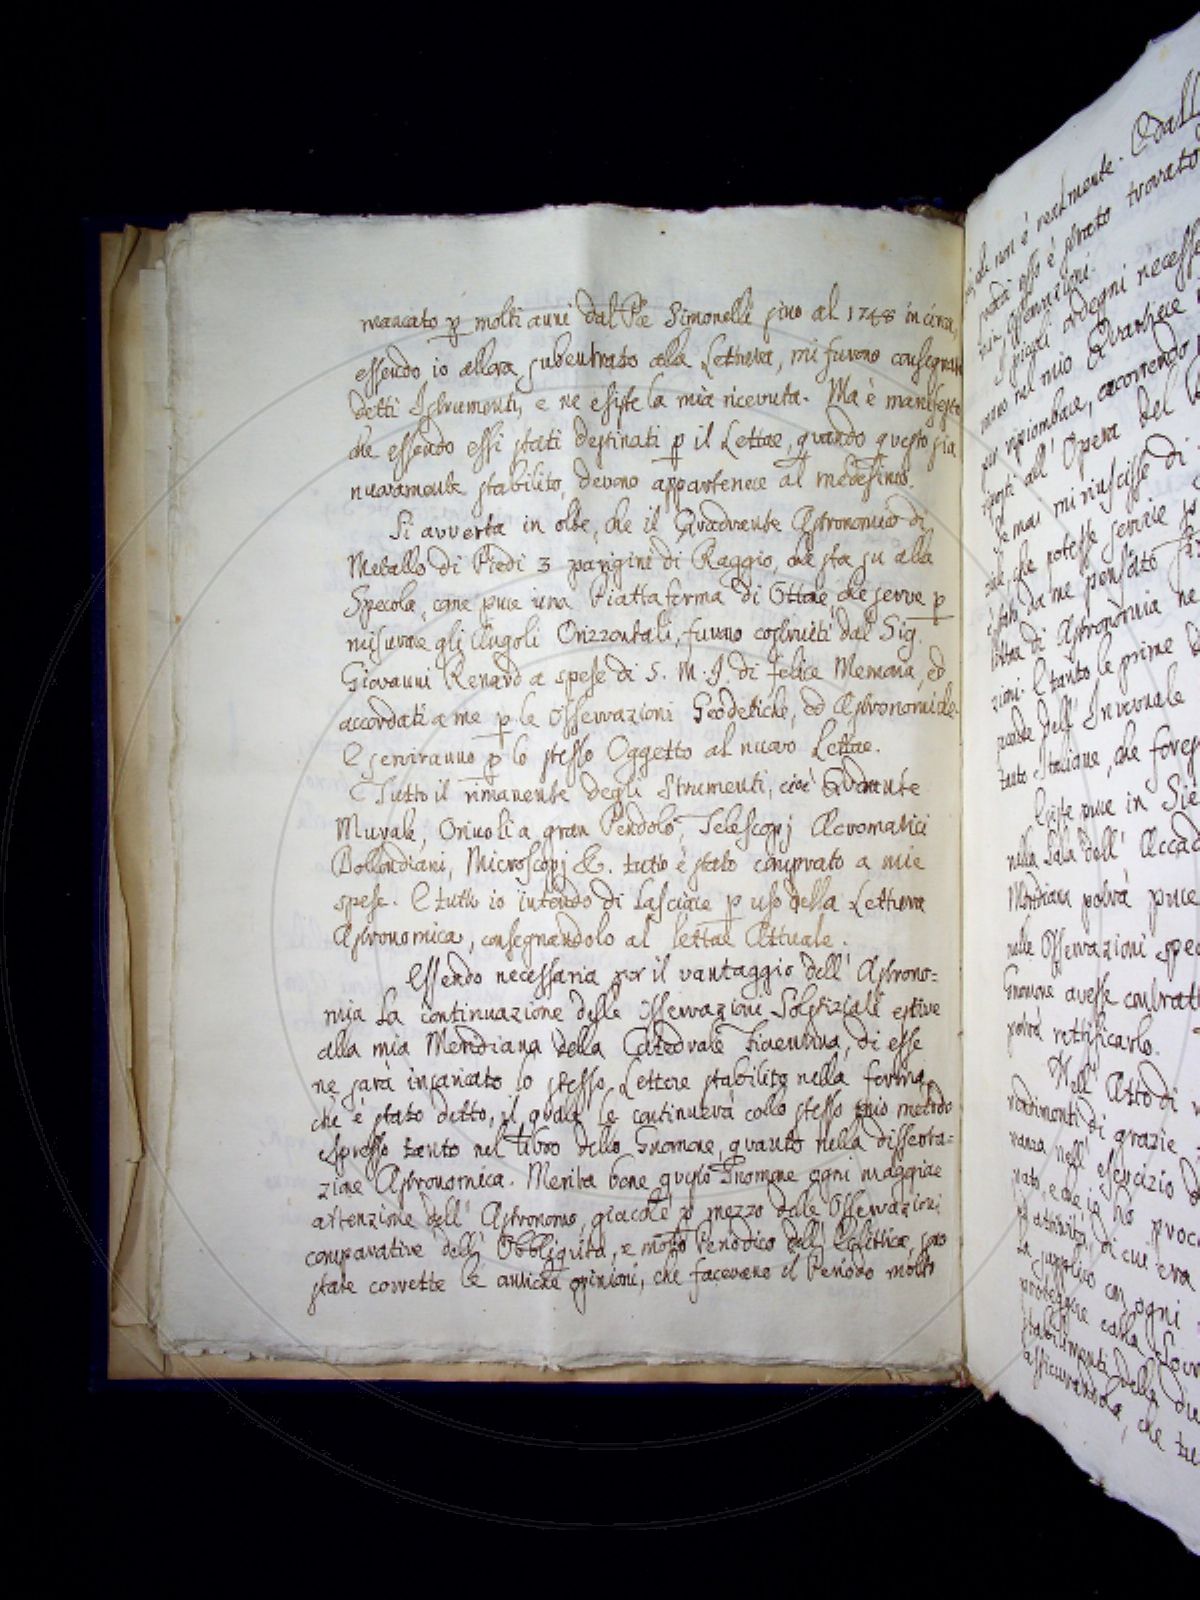 mancato p molti anni dal Pre Simonelli sino al 1748 in circa,
essendo io allora subentrato alla Lettura, mi furono consegnati
detti Istrumenti, e ne esiste la mia ricevuta. Ma è manifesto
che essendo essi stati destinati p il Lettore, quando questo sia
nuovamente stabilito, devono appartenere al medesimo.
Si avverta in oltre, che il Quadrante Astronomico di
Metallo di Piedi 3 parigini di Raggio, che sta su alla
Specola, come pure una Piattaforma di Ottone, che serve p
misurare gli Angoli Orizzontali, furono costruiti dal Sig.
Giovanni Renard a spese di S. M. I. di felice Memoria, ed
accordati a me p le Osservazioni Geodetiche, ed Astronomiche.
E serviranno p lo stesso Oggetto al nuovo Lettore.
Tutto il rimanente degli Strumenti, cioè Quadrante
Murale, Oriuoli a gran Pendolo, Telescopj Acromatici
Dollondiani, Microscopj &c. tutto è stato comprato a mie
spese. E tutto io intendo di lasciare p uso della Lettura
Astronomica, consegnandolo al lettore Attuale.
Essendo necessaria per il vantaggio dell' Astrono=
mia la continuazione delle Osservazioni Solstiziali estive
alla mia Meridiana della Catedrale fiorentina, di esse
ne sarà incaricato lo stesso Lettore stabilito nella forma,
che è stato detto, il quale le continuerà collo stesso mio metodo
espresso tanto nel libro dello Gnomone, quanto nella disserta=
zione Astronomica. Merita bene questo Gnomone ogni maggiore
attenzione dell' Astronomo, giacchè p mezzo delle Osservazioni
comparative dell' Obbliquità, e moto Periodico dell' Eclittica, sono
state corrette le antiche opinioni, che facevano il Periodo molto
che non è realmente. Edall
esso è stato trovato
osservazioni.
I piccoli ordegni necess
nel mio Quartiere
accorrendo
all' Opera del
Se mai mi riuscisse di
che potesse servire
da me pensato
di Astronomia ne
zioni. E tanto le prime
dell' Invernale
tanto Italiane, che fores
Esiste pure in Sie
nella Sala dell' Accad
Meridiana potrà pure
nelle Osservazioni spec
Gnomone avesse contratt
potrà rettificarlo.
Nell' Atto di
di grazie
nell' esercizio d
e che io ho proc
attività, di cui era
La supplico con ogni
proteggere
stabilimenti della
assicurandola, che